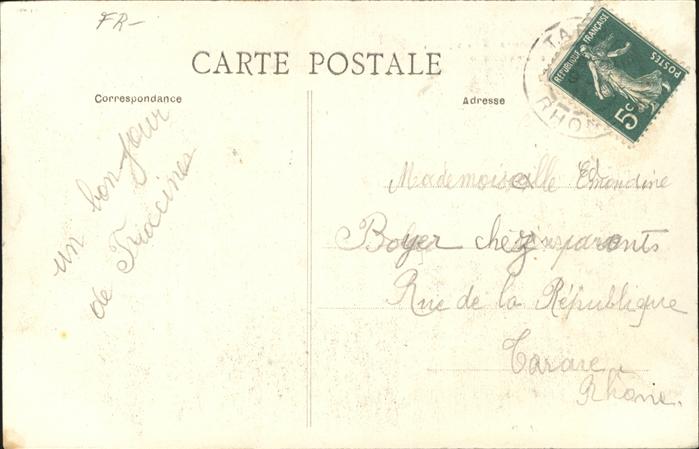 FR-
CARTE POSTALE
Correspondance
Adresse
RÉPUBLIQUE FRANÇAISE
POSTES
5c
TA
RHO
un bonjour
de
Mademoiselle Edmondine
Boyer chez parents
Rue de la République
Tarare
Rhône.